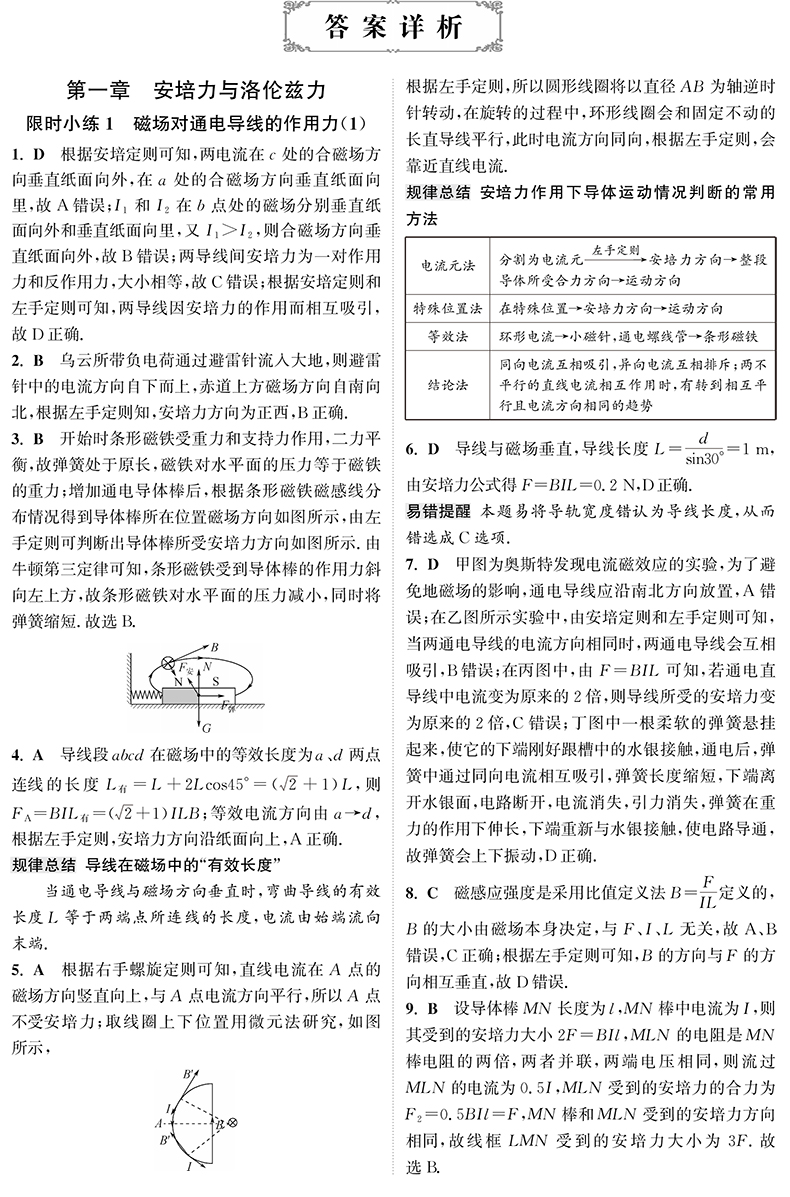 答案详析
第一章 安培力与洛伦兹力
限时小练1 磁场对通电导线的作用力(1)
1. D 根据安培定则可知,两电流在 c 处的合磁场方
向垂直纸面向外,在 a 处的合磁场方向垂直纸面向
里,故 A 错误;I₁ 和 I₂ 在 b 点处的磁场分别垂直纸
面向外和垂直纸面向里,又 I₁>I₂,则合磁场方向垂
直纸面向外,故 B 错误;两导线间安培力为一对作用
力和反作用力,大小相等,故 C 错误;根据安培定则和
左手定则可知,两导线因安培力的作用而相互吸引,
故 D 正确.
2. B 乌云所带负电荷通过避雷针流入大地,则避雷
针中的电流方向自下而上,赤道上方磁场方向自南向
北,根据左手定则知,安培力方向为正西,B 正确.
3. B 开始时条形磁铁受重力和支持力作用,二力平
衡,故弹簧处于原长,磁铁对水平面的压力等于磁铁
的重力;增加通电导体棒后,根据条形磁铁磁感线分
布情况得到导体棒所在位置磁场方向如图所示,由左
手定则可判断出导体棒所受安培力方向如图所示. 由
牛顿第三定律可知,条形磁铁受到导体棒的作用力斜
向左上方,故条形磁铁对水平面的压力减小,同时将
弹簧缩短. 故选 B.
B
F安 N
N S
F弹
G
4. A 导线段 abcd 在磁场中的等效长度为 a、d 两点
连线的长度 L有 = L + 2Lcos45° = (√2 + 1)L,则
F_A=BIL有=(√2+1)ILB;等效电流方向由 a→d,
根据左手定则,安培力方向沿纸面向上,A 正确.
规律总结 导线在磁场中的“有效长度”
当通电导线与磁场方向垂直时,弯曲导线的有效
长度 L 等于两端点所连线的长度,电流由始端流向
末端.
5. A 根据右手螺旋定则可知,直线电流在 A 点的
磁场方向竖直向上,与 A 点电流方向平行,所以 A 点
不受安培力;取线圈上下位置用微元法研究,如图
所示,
B′
I
A B
B′
I
根据左手定则,所以圆形线圈将以直径 AB 为轴逆时
针转动,在旋转的过程中,环形线圈会和固定不动的
长直导线平行,此时电流方向同向,根据左手定则,会
靠近直线电流.
规律总结 安培力作用下导体运动情况判断的常用
方法
电流元法 分割为电流元 左手定则→安培力方向→整段
导体所受合力方向→运动方向
特殊位置法 在特殊位置→安培力方向→运动方向
等效法 环形电流→小磁针,通电螺线管→条形磁铁
结论法 同向电流互相吸引,异向电流互相排斥;两不
平行的直线电流相互作用时,有转到相互平
行且电流方向相同的趋势
6. D 导线与磁场垂直,导线长度 L=d/sin30°=1 m,
由安培力公式得 F=BIL=0.2 N,D 正确.
易错提醒 本题易将导轨宽度错认为导线长度,从而
错选成 C 选项.
7. D 甲图为奥斯特发现电流磁效应的实验,为了避
免地磁场的影响,通电导线应沿南北方向放置,A 错
误;在乙图所示实验中,由安培定则和左手定则可知,
当两通电导线的电流方向相同时,两通电导线会互相
吸引,B 错误;在丙图中,由 F=BIL 可知,若通电直
导线中电流变为原来的 2 倍,则导线所受的安培力变
为原来的 2 倍,C 错误;丁图中一根柔软的弹簧悬挂
起来,使它的下端刚好跟槽中的水银接触,通电后,弹
簧中通过同向电流相互吸引,弹簧长度缩短,下端离
开水银面,电路断开,电流消失,引力消失,弹簧在重
力的作用下伸长,下端重新与水银接触,使电路导通,
故弹簧会上下振动,D 正确.
8. C 磁感应强度是采用比值定义法 B=F/IL 定义的,
B 的大小由磁场本身决定,与 F、I、L 无关,故 A、B
错误,C 正确;根据左手定则可知,B 的方向与 F 的方
向相互垂直,故 D 错误.
9. B 设导体棒 MN 长度为 l,MN 棒中电流为 I,则
其受到的安培力大小 2F=BIl,MLN 的电阻是 MN
棒电阻的两倍,两者并联,两端电压相同,则流过
MLN 的电流为 0.5I,MLN 受到的安培力的合力为
F₂=0.5BIl=F,MN 棒和 MLN 受到的安培力方向
相同,故线框 LMN 受到的安培力大小为 3F. 故
选 B.